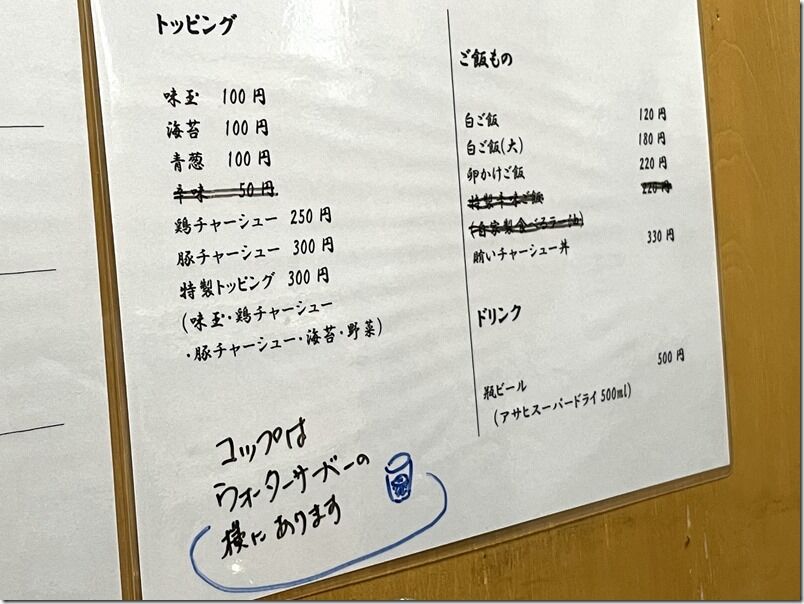 トッピング
味玉 100円
海苔 100円
青葱 100円
辛味 50円
鶏チャーシュー 250円
豚チャーシュー 300円
特製トッピング 300円
(味玉・鶏チャーシュー
・豚チャーシュー・海苔・野菜)
コップは
ウォーターサーバーの
横にあります
ご飯もの
白ご飯 120円
白ご飯(大) 180円
卵かけご飯 220円
特製辛味ご飯 220円
(自家製食べるラー油)
賄いチャーシュー丼 330円
ドリンク
瓶ビール 500円
(アサヒスーパードライ500ml)